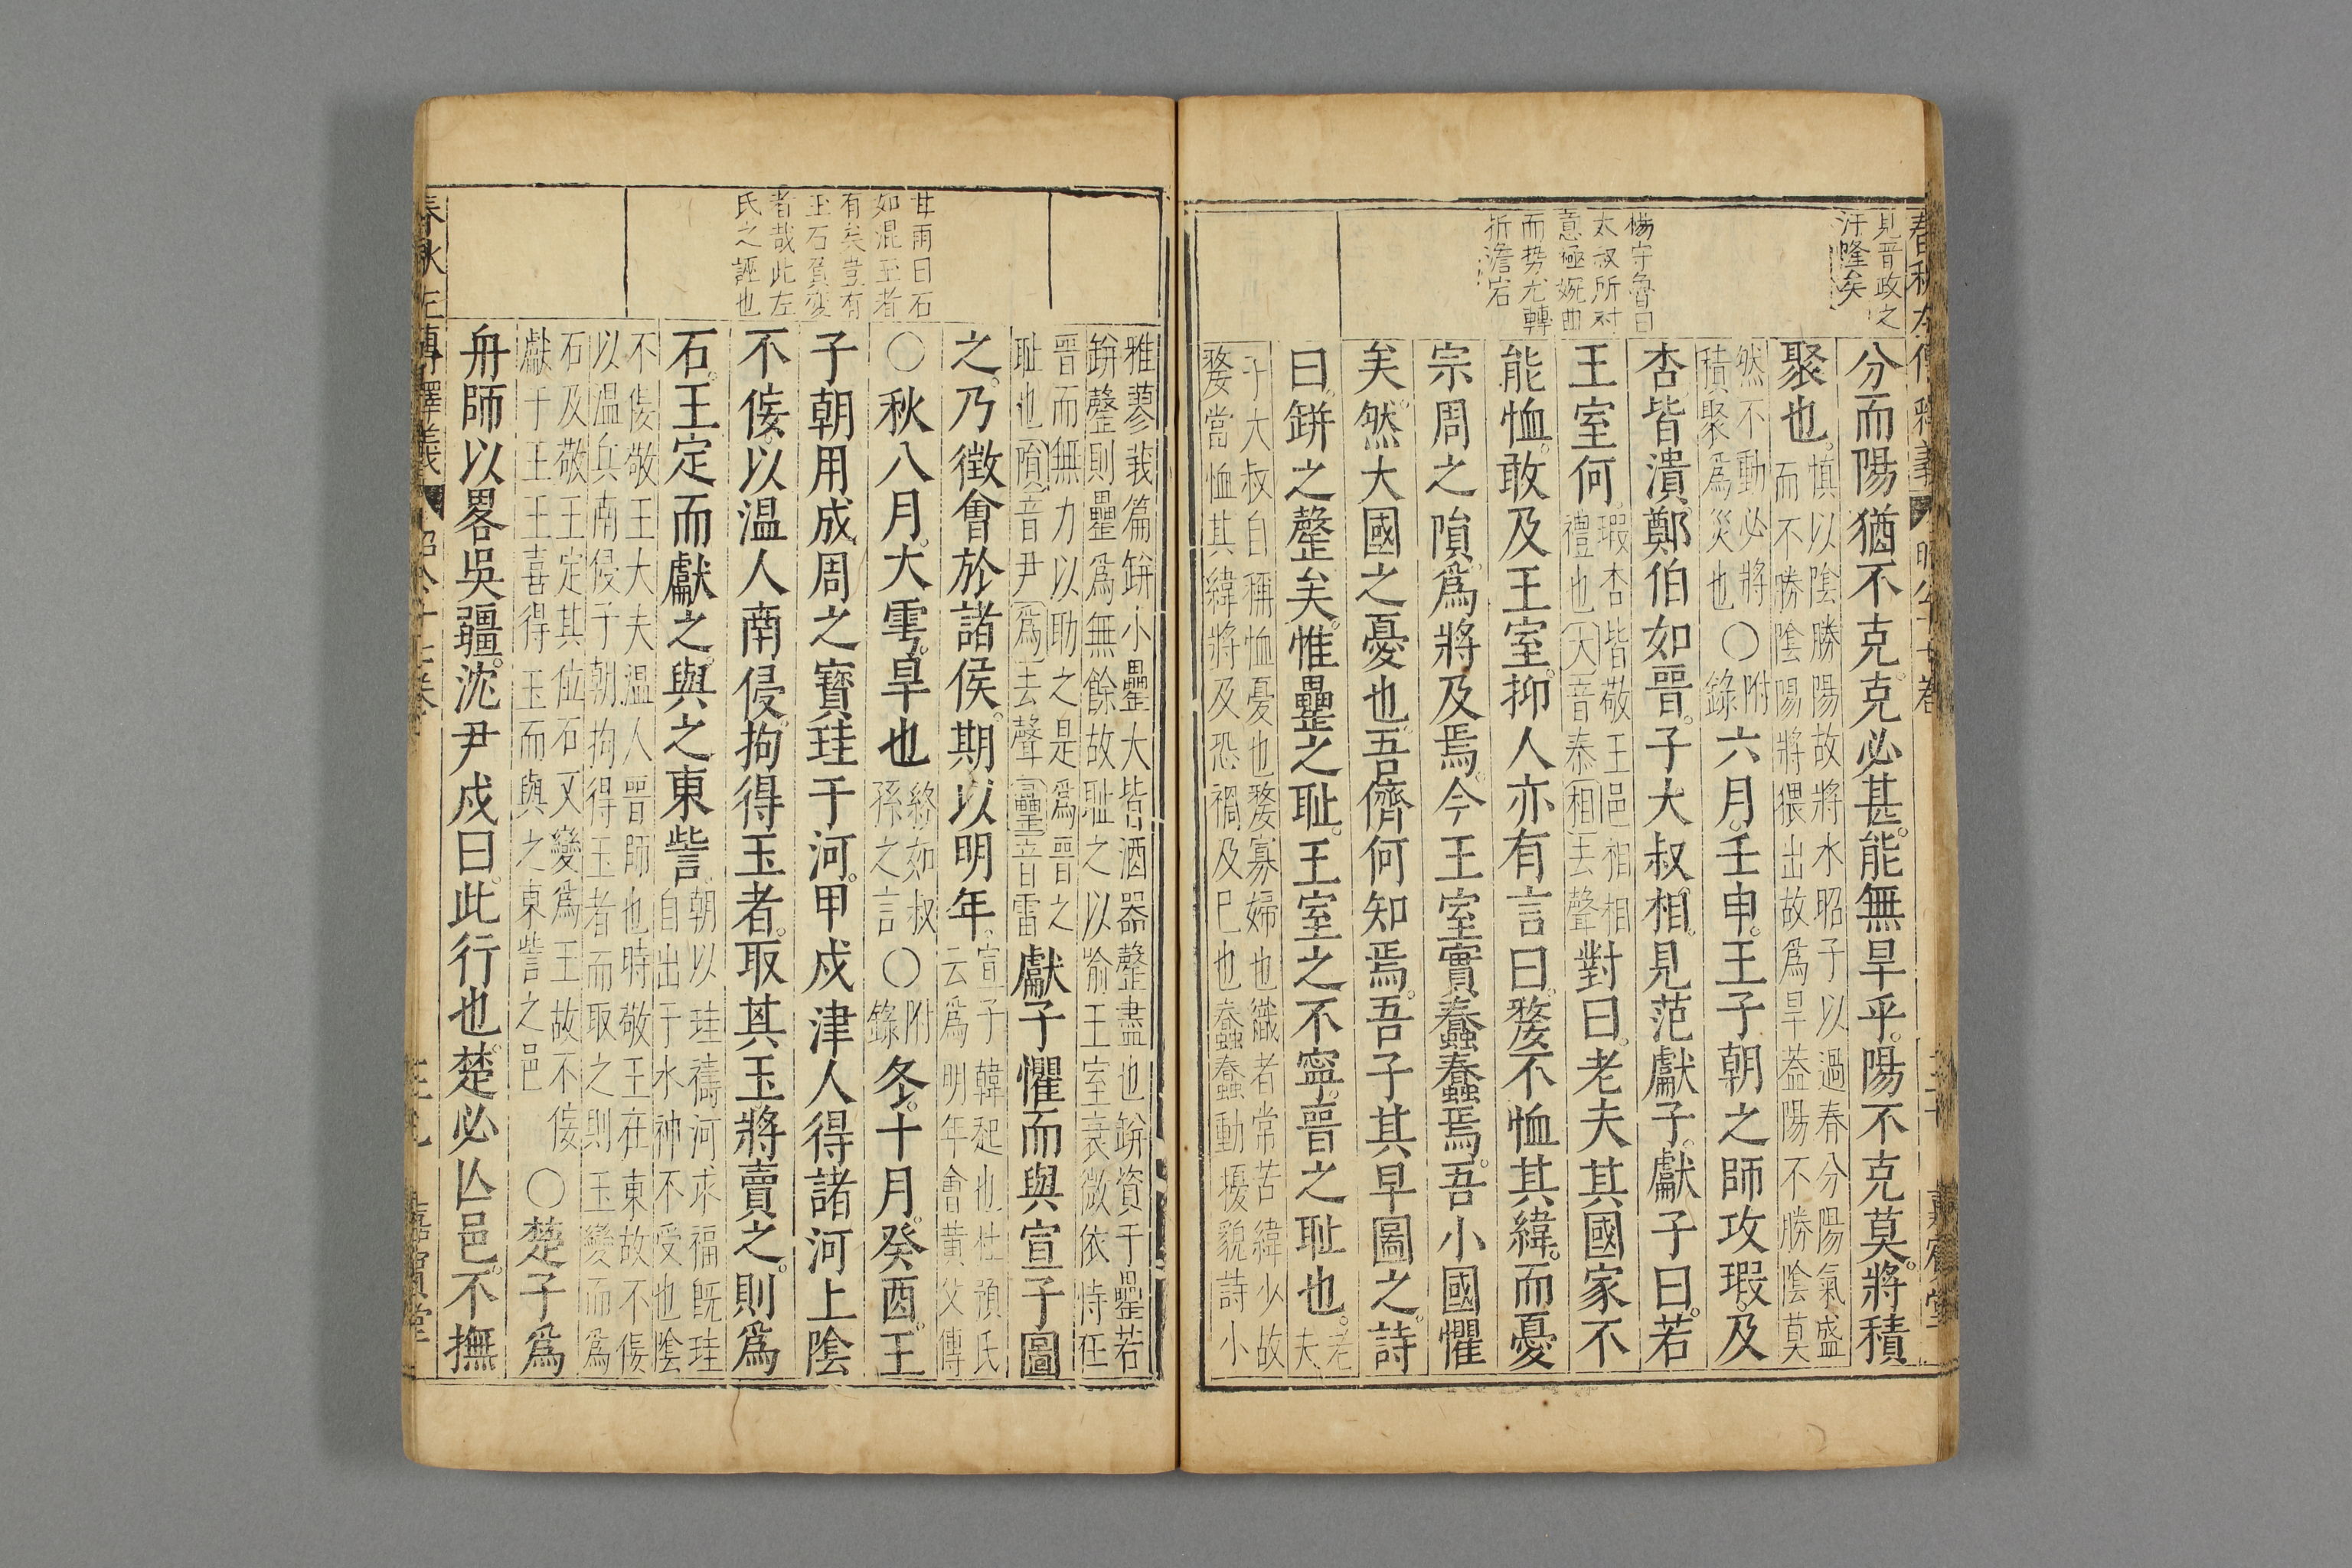 見晉政之
汙隆矣
楊守魯曰
太叔所对
意極婉曲
而势尤轉
折澹宕
分而陽猶不克克必甚能無旱乎陽不克莫將積
聚也慎以陰勝陽故將水昭子以過春分陽氣盛而不勝陰陽將猥出故爲旱葢陽不勝陰莫
然不動必將積聚爲災也〇附錄六月壬申王子朝之師攻瑕及
杏皆潰鄭伯如晉子大叔相見范獻子獻子曰若
王室何瑕杏皆敬王邑相相禮也大音泰相去聲對曰老夫其國家不
能恤敢及王室抑人亦有言曰嫠不恤其緯而憂
宗周之隕爲將及焉今王室實蠢蠢焉吾小國懼
矣然大國之憂也吾儕何知焉吾子其早圖之詩
曰缾之罄矣惟罍之耻王室之不寧晉之耻也老夫
子大叔自稱恤憂也嫠寡婦也織者常苦緯少故嫠當恤其緯將及恐禍及巳也蠢蠢動擾貌詩小
甘雨曰石
如混玉者
有矣豈有
玉石貿变
者哉此左
氏之誣也
雅蓼莪篇缾小罍大皆酒器罄盡也缾資于罍若缾罄則罍爲無餘故耻之以喻王室衰微依恃在
晉而無力以助之是爲晉之耻也隕音尹爲去聲罍音雷獻子懼而與宣子圖
之乃徵會於諸侯期以明年宣子韓起也壮預氏云爲明年會黃父傳
〇秋八月大雩旱也終如叔孫之言〇附錄冬十月癸酉王
子朝用成周之寶珪于河甲戍津人得諸河上陰
不佞以温人南侵拘得玉者取其玉將賣之則爲
石王定而獻之與之東訾朝以珪禱河求福既珪自出于水神不受也陰
不佞敬王大夫温人晉師也時敬王在東故不佞以温兵南侵子朝拘得玉者而取之則玉變而爲
石及敬王定其位石又變爲王故不佞獻于王王喜得玉而與之東訾之邑〇楚子爲
舟師以畧吳疆沈尹戍曰此行也楚必亾邑不撫